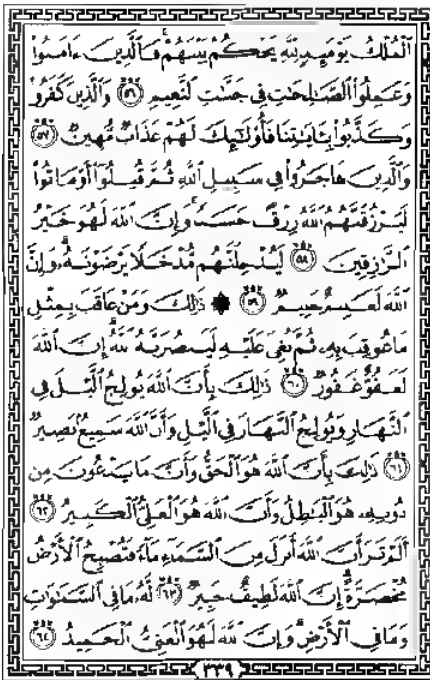 ٱلْمُلْكُ يَوْمَئِذٍ لِّلَّهِ يَحْكُمُ بَيْنَهُمْ فَٱلَّذِينَ ءَامَنُوا۟
وَعَمِلُوا۟ ٱلصَّـٰلِحَـٰتِ فِى جَنَّـٰتِ ٱلنَّعِيمِ ٥٦ وَٱلَّذِينَ كَفَرُوا۟
وَكَذَّبُوا۟ بِـَٔايَـٰتِنَا فَأُو۟لَـٰٓئِكَ لَهُمْ عَذَابٌ مُّهِينٌ ٥٧
وَٱلَّذِينَ هَاجَرُوا۟ فِى سَبِيلِ ٱللَّهِ ثُمَّ قُتِلُوٓا۟ أَوْ مَاتُوا۟
لَيَرْزُقَنَّهُمُ ٱللَّهُ رِزْقًا حَسَنًا وَإِنَّ ٱللَّهَ لَهُوَ خَيْرُ
ٱلرَّٰزِقِينَ ٥٨ لَيُدْخِلَنَّهُم مُّدْخَلًا يَرْضَوْنَهُۥ وَإِنَّ
ٱللَّهَ لَعَلِيمٌ حَلِيمٌ ٥٩ ۞ ذَٰلِكَ وَمَنْ عَاقَبَ بِمِثْلِ
مَا عُوقِبَ بِهِۦ ثُمَّ بُغِىَ عَلَيْهِ لَيَنصُرَنَّهُ ٱللَّهُ إِنَّ ٱللَّهَ
لَعَفُوٌّ غَفُورٌ ٦٠ ذَٰلِكَ بِأَنَّ ٱللَّهَ يُولِجُ ٱلَّيْلَ فِى
ٱلنَّهَارِ وَيُولِجُ ٱلنَّهَارَ فِى ٱلَّيْلِ وَأَنَّ ٱللَّهَ سَمِيعٌۢ بَصِيرٌ
٦١ ذَٰلِكَ بِأَنَّ ٱللَّهَ هُوَ ٱلْحَقُّ وَأَنَّ مَا يَدْعُونَ مِن
دُونِهِۦ هُوَ ٱلْبَـٰطِلُ وَأَنَّ ٱللَّهَ هُوَ ٱلْعَلِىُّ ٱلْكَبِيرُ ٦٢
أَلَمْ تَرَ أَنَّ ٱللَّهَ أَنزَلَ مِنَ ٱلسَّمَآءِ مَآءً فَتُصْبِحُ ٱلْأَرْضُ
مُخْضَرَّةً إِنَّ ٱللَّهَ لَطِيفٌ خَبِيرٌ ٦٣ لَّهُۥ مَا فِى ٱلسَّمَـٰوَٰتِ
وَمَا فِى ٱلْأَرْضِ وَإِنَّ ٱللَّهَ لَهُوَ ٱلْغَنِىُّ ٱلْحَمِيدُ ٦٤
٣٣٩